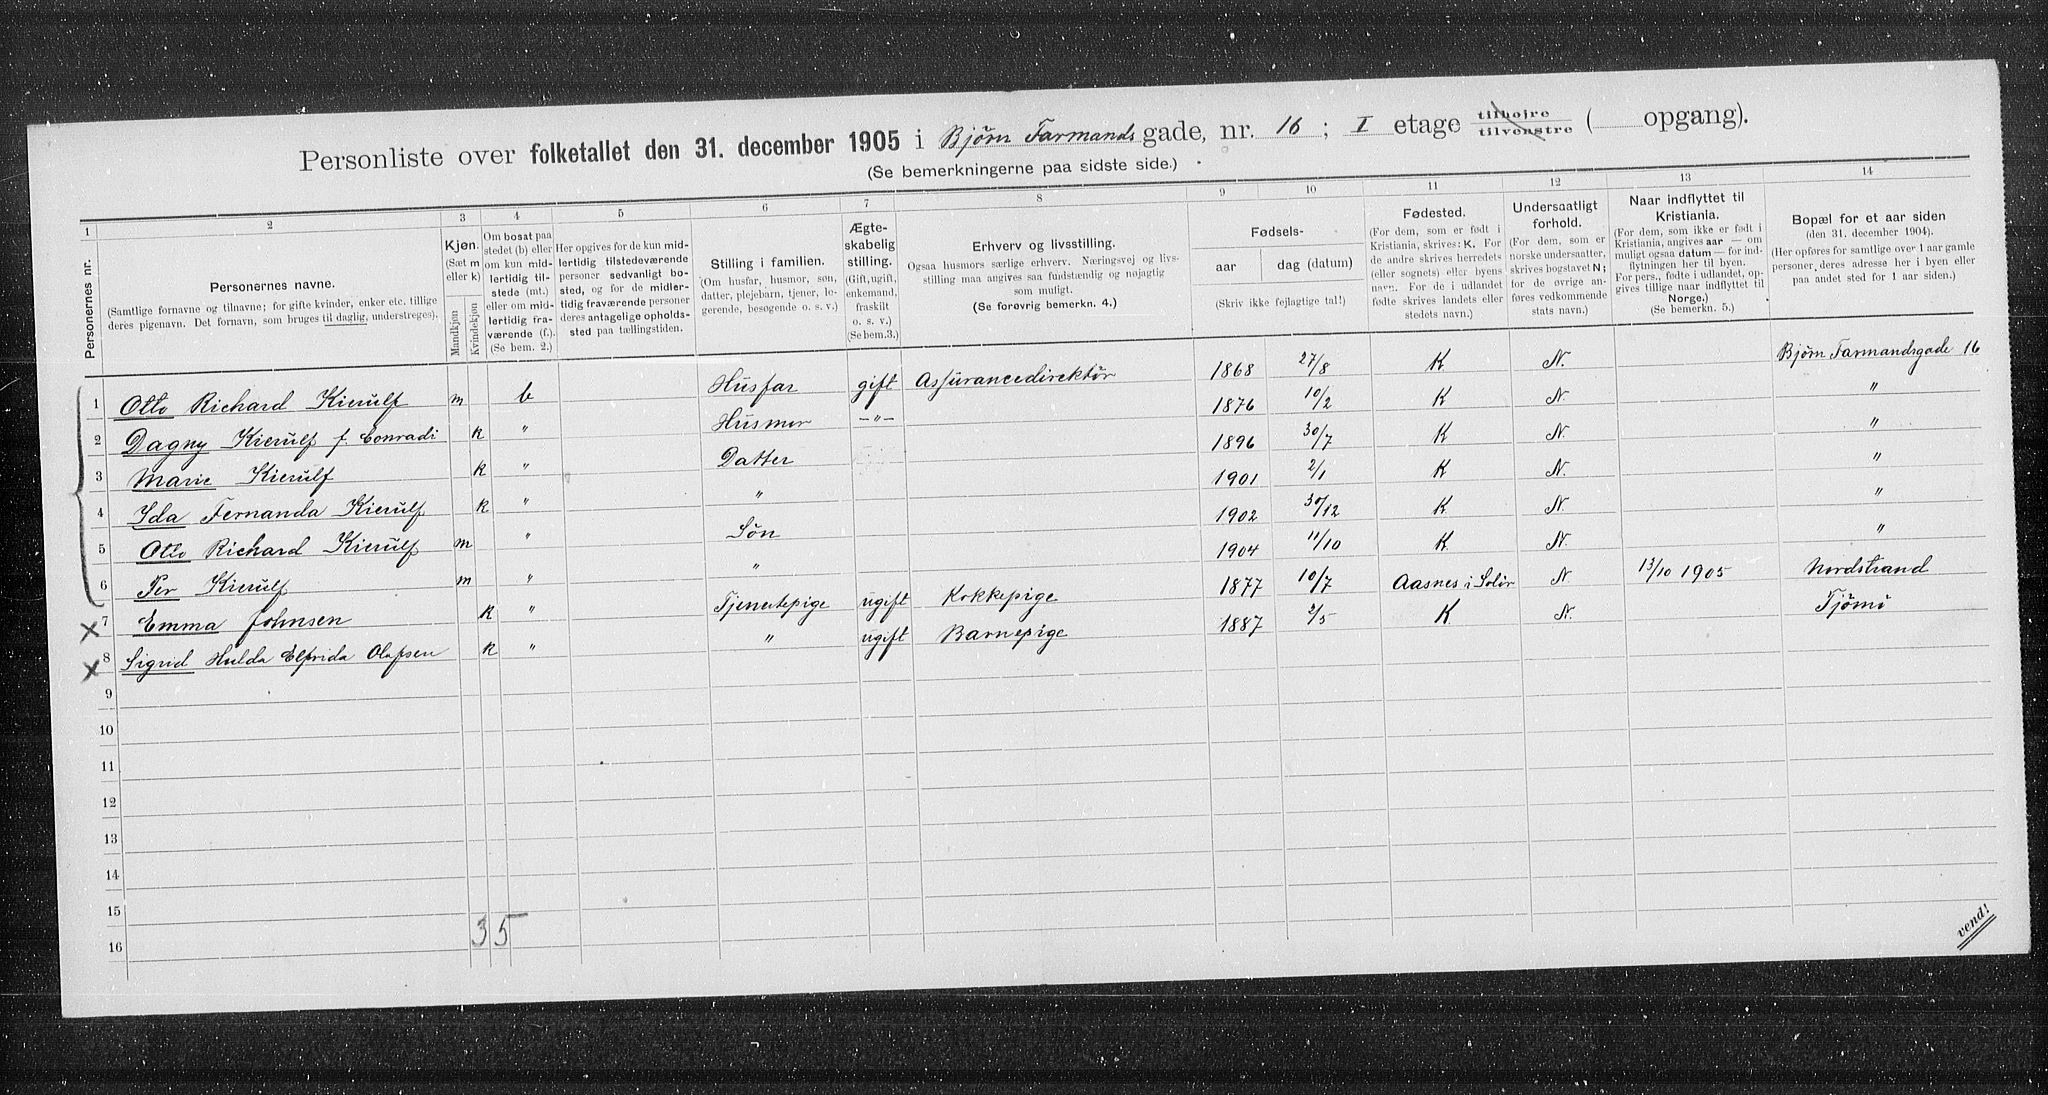 Personliste over folketallet den 31. december 1905 i Bjørn Farmands gade, nr. 16 ; I etage tilhøjre tilvenstre ( opgang).
(Se bemerkningerne paa sidste side.)
1 2 3 4 5 6 7 8 9 10 11 12 13 14
Personernes nr.
Personernes navne.
(Samtlige fornavne og tilnavne; for gifte kvinder, enker etc. tillige
deres pigenavn. Det fornavn, som bruges til daglig, understreges).
Kjøn.
(Sæt m
eller k)
Mandkjøn
Kvindekjøn
Om bosat paa
stedet (b) eller
om kun mid-
lertidig til-
stede (mt.)
eller om mid-
lertidig fra-
værende (f.).
(Se bem. 2.)
Her opgives for de kun mid-
lertidig tilstedeværende
personer sedvanligt bo-
sted, og for de midler-
tidig fraværende personer
deres antagelige opholds-
sted paa tællingstiden.
Stilling i familien.
(Om husfar, husmor, søn,
datter, plejebarn, tjener, lo-
gerende, besøgende o. s. v.)
Ægte-
skabelig
stilling.
(Gift, ugift,
enkemand,
fraskilt
o. s. v.)
(Se bem.3.)
Erhverv og livsstilling.
Ogsaa husmors særlige erhverv. Næringsvej og livs-
stilling maa angives saa fuldstændig og nøjagtig
som muligt.
(Se forøvrig bemerkn. 4.)
Fødsels-
aar
dag (datum)
(Skriv ikke fejlagtige tal!)
Fødested.
(For dem, som er født i
Kristiania, skrives: K. For
de andre skrives herredets
(eller sognets) eller byens
navn. For de i udlandet
fødte skrives landets eller
stedets navn.)
Undersaatligt
forhold.
(For dem, som er
norske undersaatter,
skrives bogstavet N;
for de øvrige an-
føres vedkommende
stats navn.)
Naar indflyttet til
Kristiania.
(For dem, som ikke er født i
Kristiania, angives aar — om
muligt ogsaa datum — for ind-
flytningen her til byen.
For pers., fødte i udlandet, op-
gives tillige naar indflyttet til
Norge.)
(Se bemerkn. 5.)
Bopæl for et aar siden
(den 31. december 1904).
(Her opføres for samtlige over 1 aar gamle
personer, deres adresse her i byen eller
paa andet sted for 1 aar siden.)
1 Otto Richard Kierulf m b Husfar gift Assurancedirektør 1868 27/8 K N. Bjørn Farmandsgade 16
2 Dagny Kierulf f. Conradi k " Husmor —"— 1876 10/2 K N "
3 Marie Kierulf k " Datter 1896 30/7 K N. "
4 Ida Fernanda Kierulf k " " 1901 2/1 K N. "
5 Otto Richard Kierulf m " Søn 1902 30/12 K N. "
6 Per Kierulf m " " 1904 11/10 K N. "
7 Emma Johnsen k " Tjenestepige ugift Kokkepige 1877 10/7 Aasnes i Solør N 13/10 1905 Nordstrand
8 Sigrid Hulda Elfrida Olafsen k " " ugift Barnepige 1887 2/5 K N. Tjømø
9
10
11
12
13
14
15
16
3 5
vend!